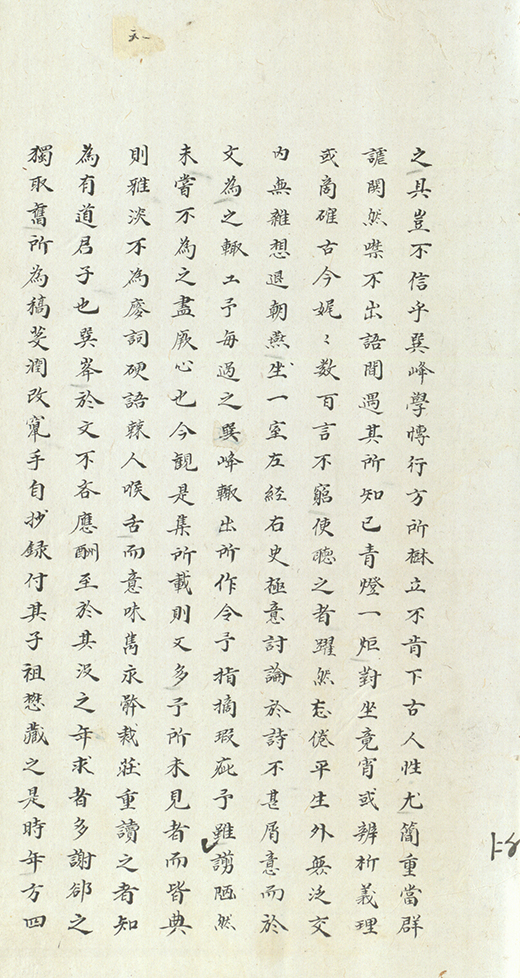 之具豈不信乎巽峰學博行方所樹立不肯下古人性尤簡重當群
謔鬨然噤不出語間遇其所知已青燈一炬對坐竟宵或辨析義理
或商確古今娓〻數百言不窮使聽之者躍然忘倦平生外無泛交
内無雜想退朝燕坐一室左經右史極意討論於詩不甚屑意而於
文為之輙工予每過之巽峰輙出所作令予指摘瑕疵予雖謭陋然
未嘗不為之盡厥心也今觀是集所載則又多予所未見者而皆典
則雅淡不為廋詞硬語棘人喉舌而意味雋永幹裁莊重讀之者知
為有道君子也巽峯於文不吝應酬至於其没之年求者多謝郤之
獨取舊所為稿芟潤改竄手自抄録付其子祖懋藏之是時年方四